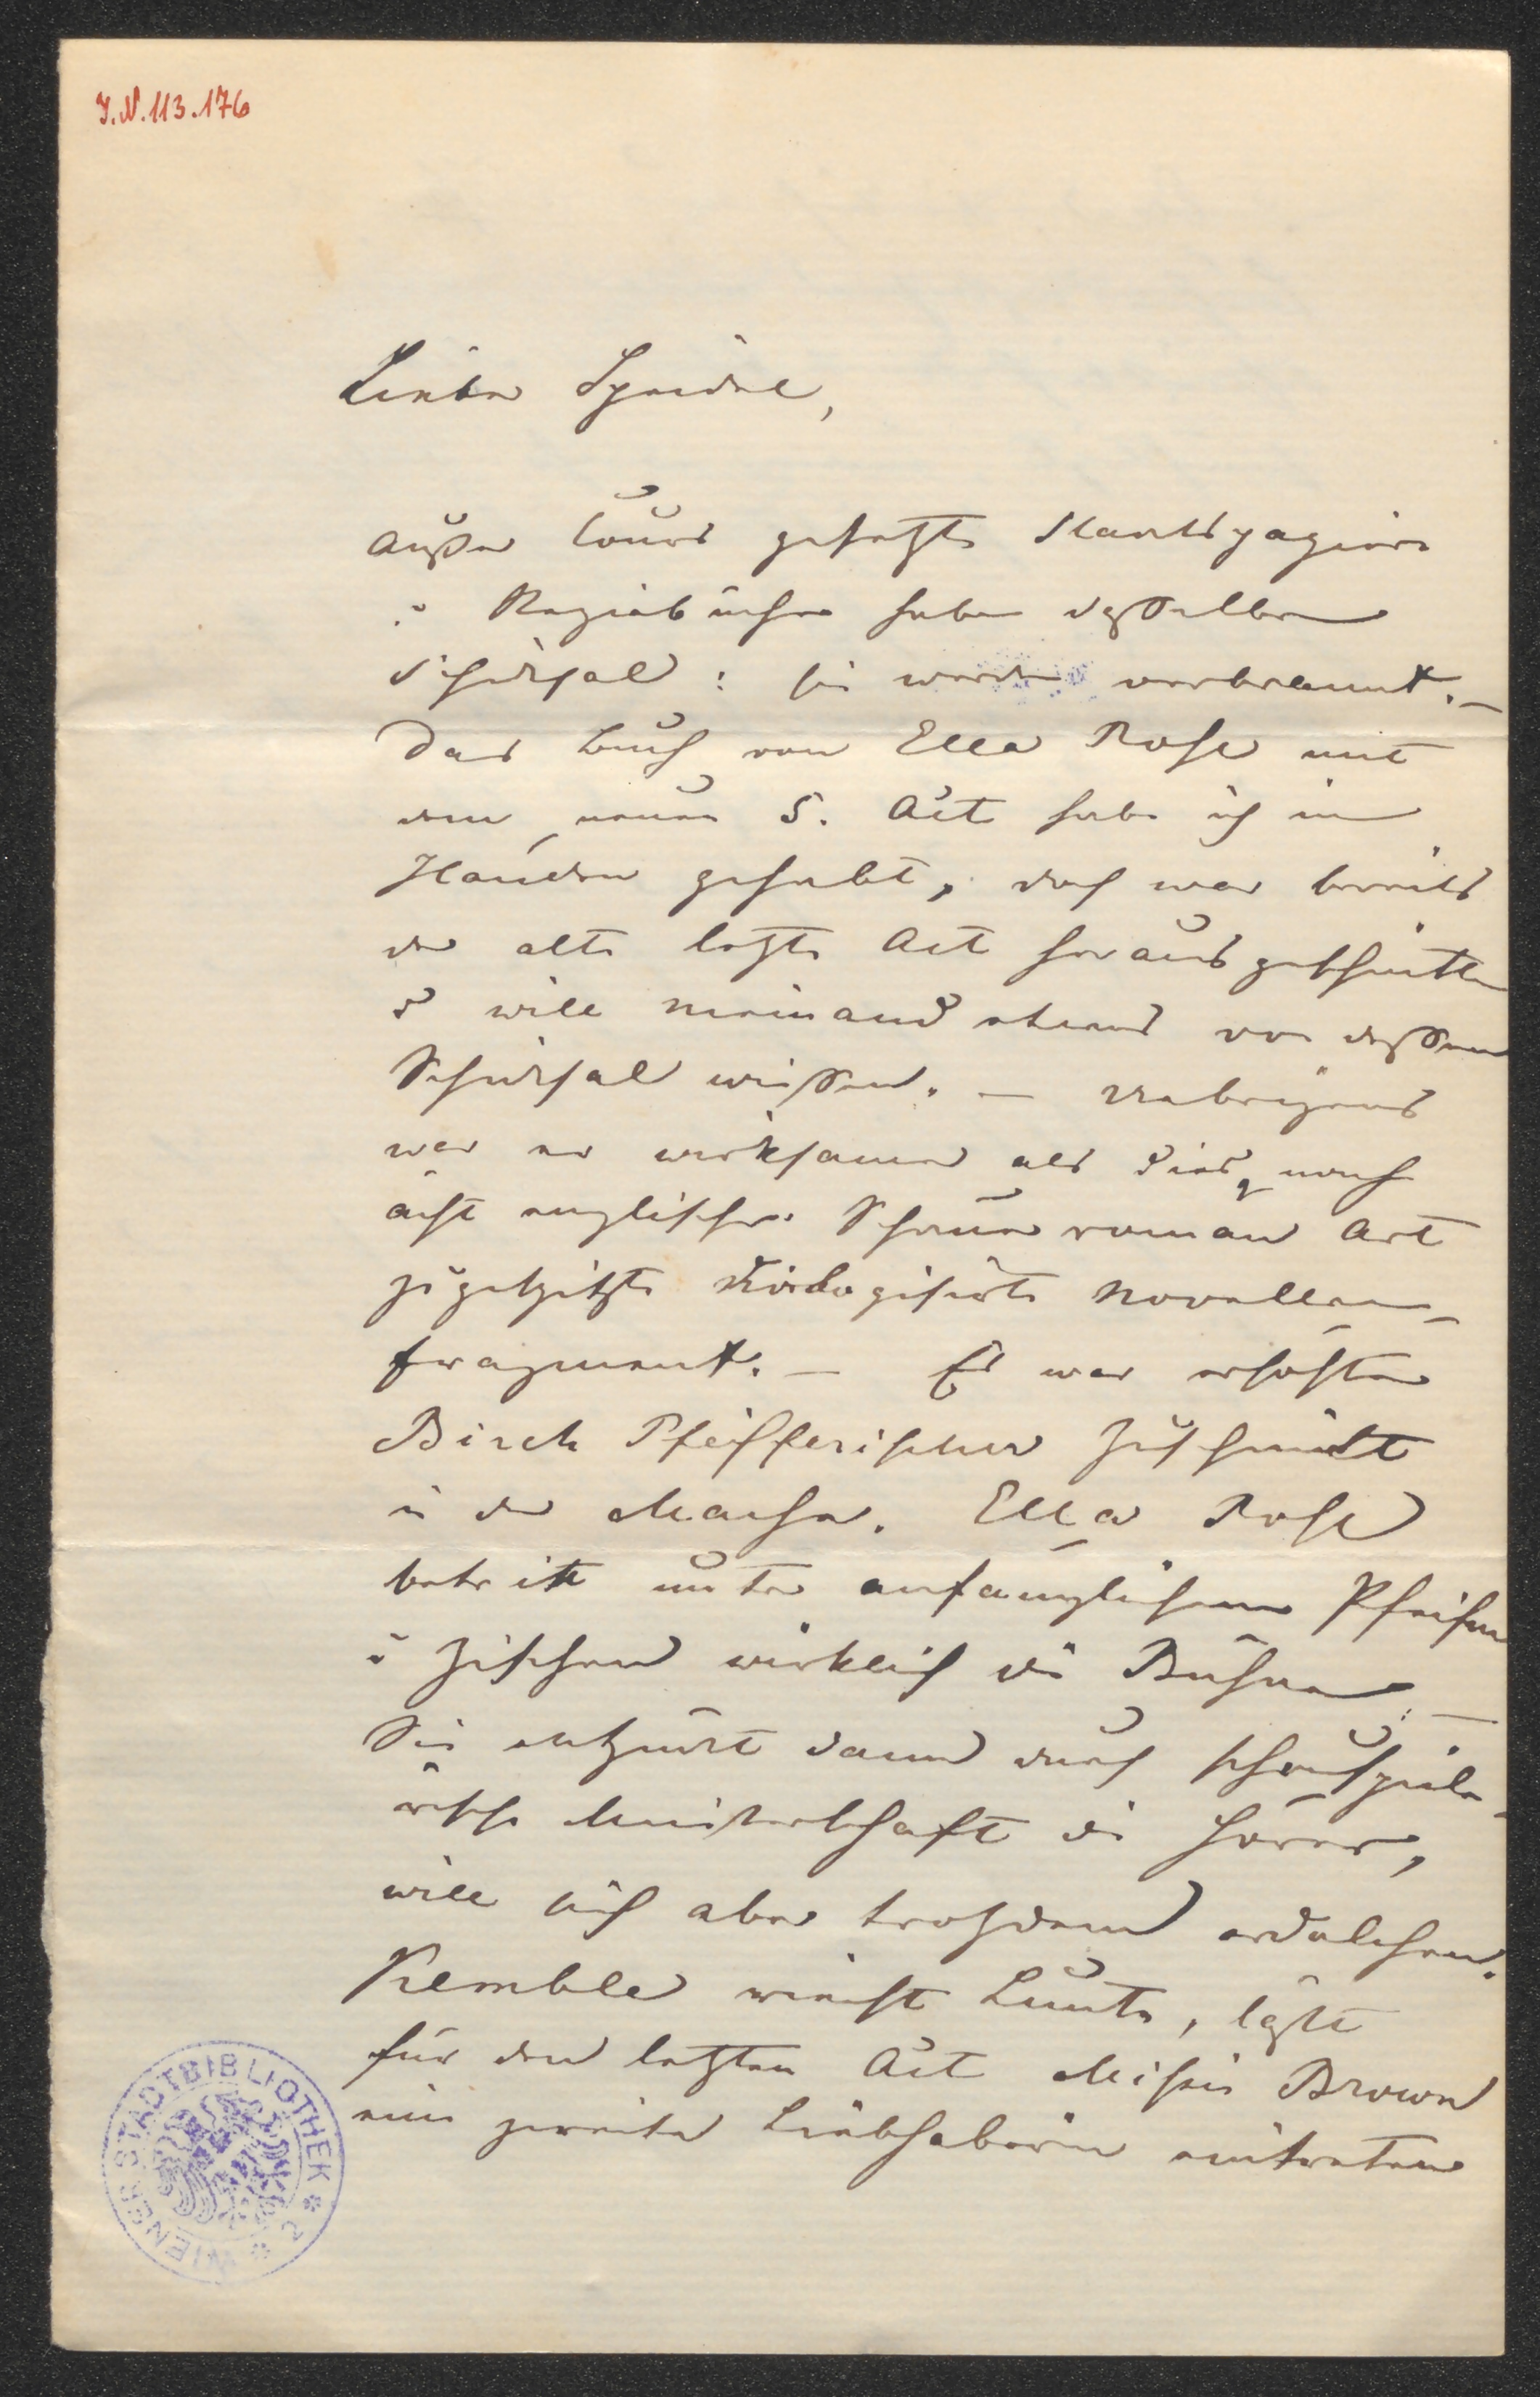 I.N. 113.176
Lieber Speidel,
außer Cours gesetzte Staatspapiere
u Regiebücher haben dasselbe
Schicksal: sie werden verbrannt. —
Das Buch von Ella Rose mit
dem neuen 5. Act habe ich in
Händen gehabt, doch war bereits
der alte letzte Act herausgeschnitten
u will niemand etwas von dessen
Schicksal wissen. — Uebrigens
war er wirksamer als dies, nach
ächt englischer Schauerroman Art
zugespitzte dialogisirte Novellen-
fragment. — Es war
Birch Pfeifferischer Zuschnitt
in der Mache. Ella Rose
betritt unter anfänglichem Pfeifen
u Zischen wirklich die Bühne —
Sie entzückt dann durch schauspiele-
rische Meisterschaft die Hörer,
will sich aber trotzdem erdolchen.
Kemble riecht Lunte, läßt
für den letzten Act Missis Brown
eine zweite Liebhaberin eintreten
WIENER STADTBIBLIOTHEK * 2 *